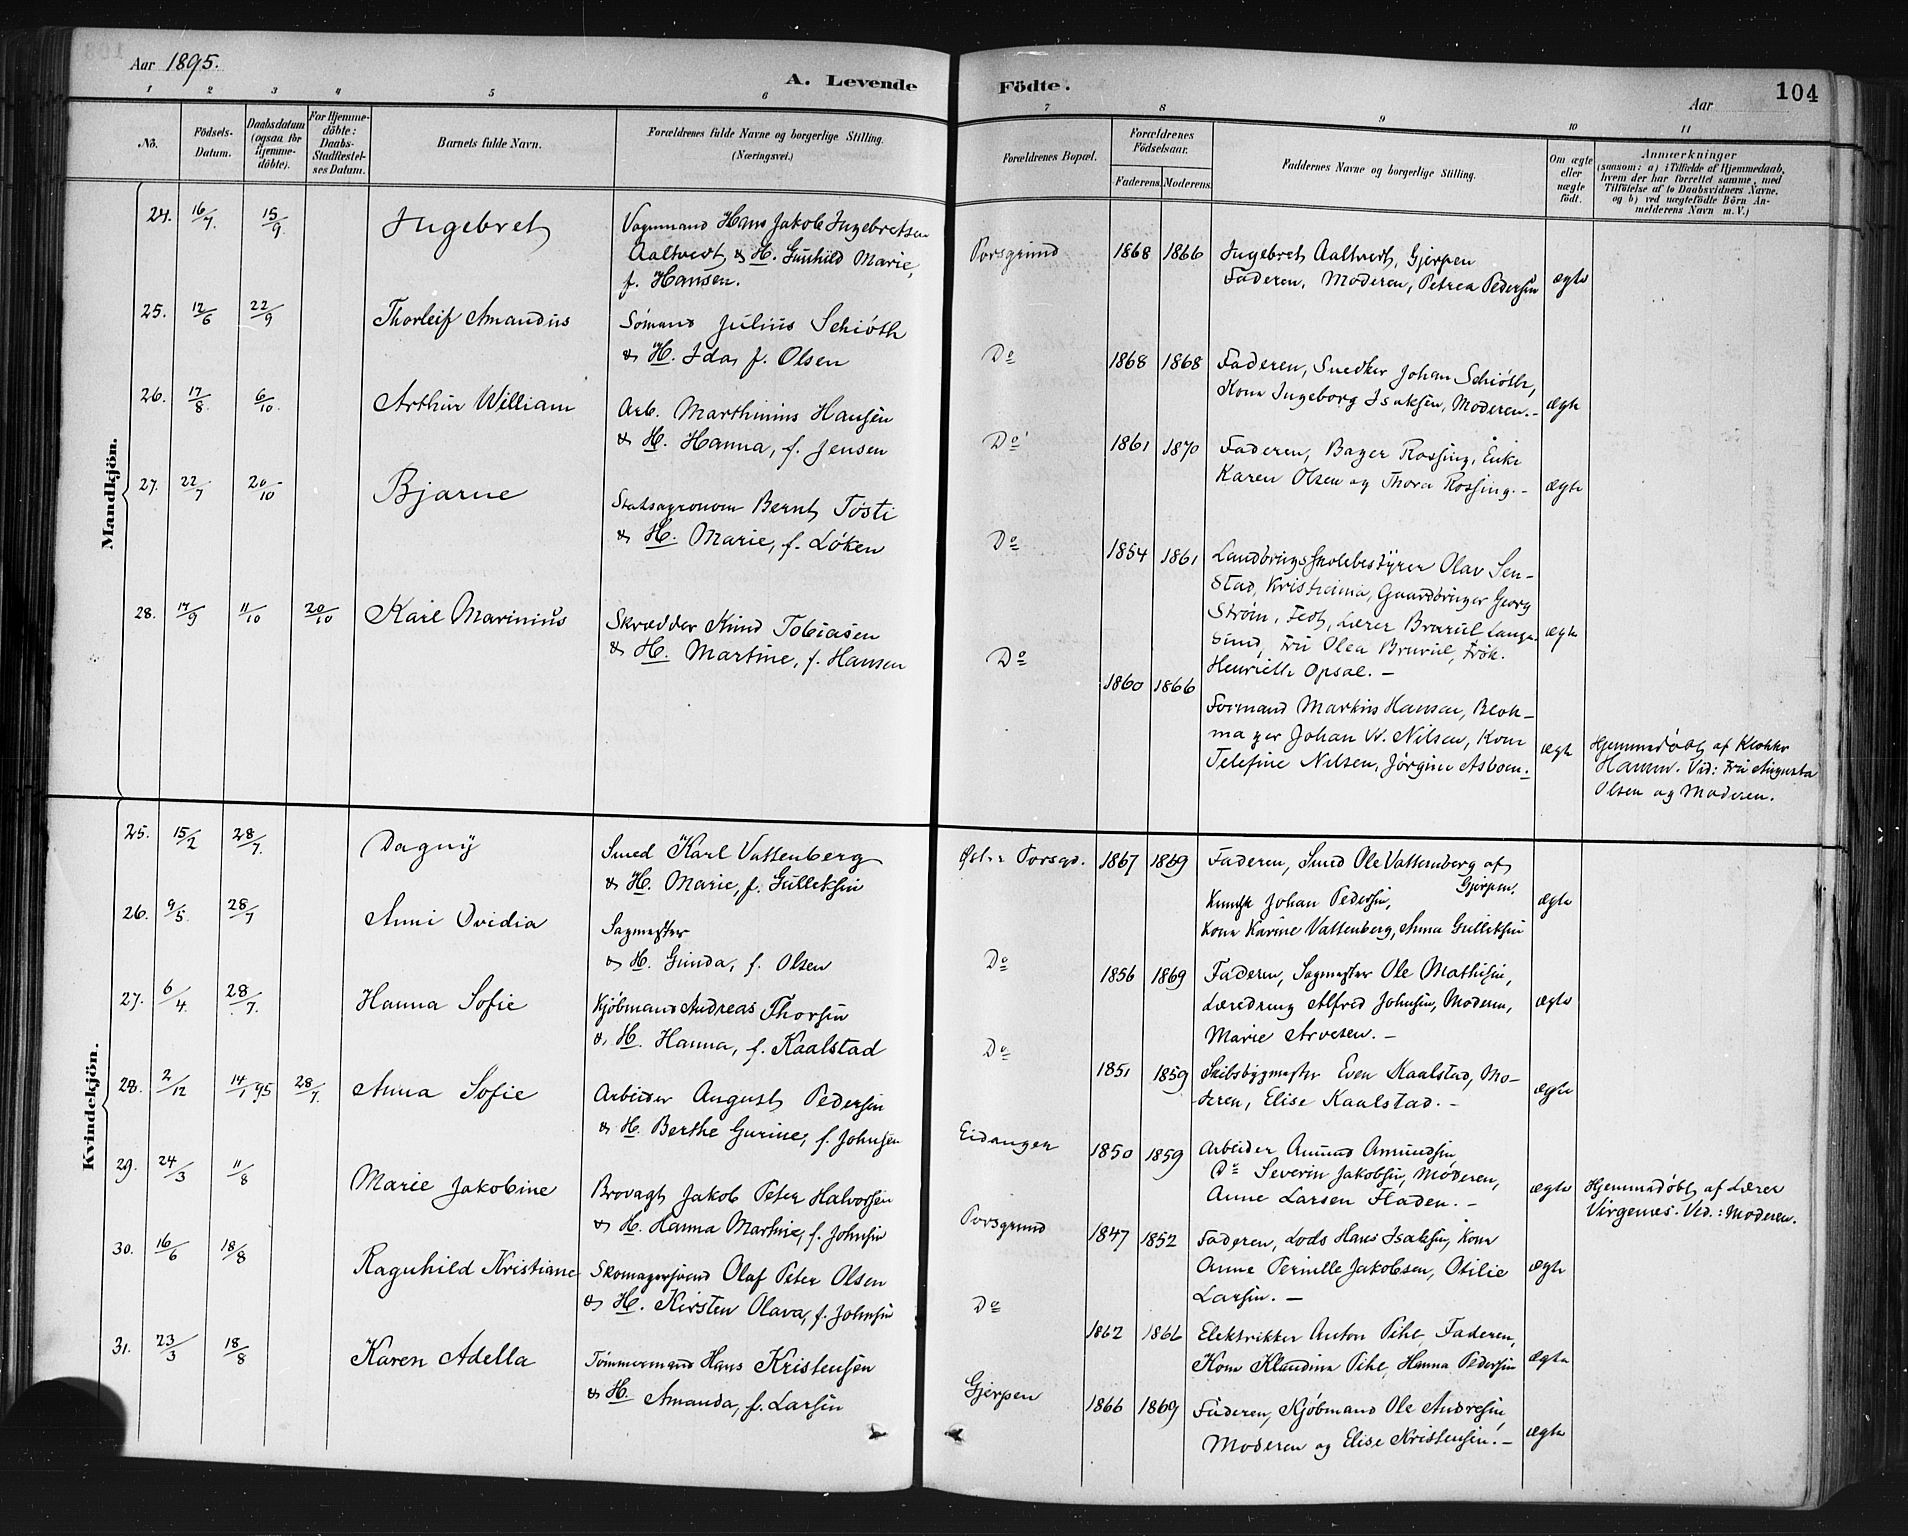 Aar 1895.
A. Levende
1 2 3 4 5 6
No.
Födsels-Datum.
Daabsdatum (ogsaa for Hjemme-döbte).
For Hjemme-döbte: Daabs-Stadfæstel-ses Datum.
Barnets fulde Navn.
Forældrenes fulde Navne og borgerlige Stilling.
(Næringsvei.)
Mandkjön.
24. 16/7. 15/9. Ingebret Vognmand Hans Jakob Ingebretsen
Aaltvedt & H. Gunhild Marie,
f. Hansen.
25. 12/6 22/9 Thorleif Amandus Sømand Julius Schiøth
& H. Ida, f. Olsen
26. 17/8 6/10. Arthur William Arb. Marthinius Hansen
& H. Hanna, f. Jensen
27. 22/7 20/10 Bjarne Statsagronom Bernt Tøsti
& H. Marie, f. Løken
28. 17/9 11/10 20/10 Karl Marinius Skrædder Knud Tobiasen
& H. Martine, f. Hansen
Kvindekjön.
25. 15/2 28/7. Dagny Smed Karl Vattenberg
& H. Marie, f. Gulleksen
26. 9/5 28/7 Anni Ovidia Sagmester
& H. Gunda, f. Olsen
27. 6/4 28/7. Hanna Sofie Kjøbmand Andreas Thorsen
& H. Hanna, f. Kaalstad
28. 2/12 14/1 95 28/7. Anna Sofie Arbeider August Pedersen
& H. Berthe Gurine, f. Johnsen
29. 24/3 11/8 Marie Jakobine Brovagt Jakob Peter Halvorsen
& H. Hanna Martine, f. Johnsen
30. 16/6 18/8 Ragnhild Kristiane Skomagersvend Olaf Peter Olsen
& H. Kirsten Olava, f. Johnsen
31. 23/3 18/8 Karen Adella Tømmermand Hans Kristensen
& H. Amanda, f. Larsen
Födte.
Aar
104
7 8 9 10 11
Forældrenes Bopæl.
Forældrenes Födselsaar.
Faderens. Moderens.
Faddernes Navne og borgerlige Stilling.
Om ægte eller uægte födt.
Anmærkninger
(saasom: a) i Tilfælde af Hjemmedaab,
hvem der har forrettet samme, med
Tilföielse af to Daabsvidners Navne,
og b) ved uægtefödte Börn An-
melderens Navn m. V.)
Porsgrund 1868 1866 Ingebret Aaltvedt, Gjerpen
Faderen, Moderen, Petrea Pedersen ægte
Do 1868 1868 Faderen, Snedker Johan Schiøth,
Kone Ingeborg Isaksen, Moderen.- ægte
Do 1861 1870 Faderen, Bager Rossing, Enke
Karen Olsen og Thora Rossing.- ægte
Do 1854 1861 Landbrugsskolebestyrer Olav Sen-
stad, Kristiania, Gaardbruger Georg
Strøm, Lærer Langesund, Fru Olea Frøk. ægte
Henriette Opsal.-
Do 1860 1866 Formand Markus Hansen, Blok-
mager Johan W. Nilsen, Kone
Telefine Nilsen, Jørgine Asbom. ægte Hjemmedøbt af Klokker
Hamm. Vid: Fru Augusta
Olsen og Moderen.
Østre Porsgr. 1867 1869 Faderen, Smed Ole Vattenberg af
Gjerpen.
Johan Pedersen, ægte
Kone Karine Vattenberg, Anna Gulleksen
Do 1856 1869 Faderen, Sagmester Ole Mathisen,
Læredreng Alfred Johnsen, Moderen, ægte
Marie Arvesen.-
Do 1851 1859 Skibsbygmester Even Kaalstad, Mo-
deren, Elise Kaalstad.- ægte
Eidanger 1850 1859 Arbeider Amund Amundsen
Do Severin Jakobsen, Moderen,
Anne Larsen Fladen.- ægte Hjemmedøbt af Lærer
Virgenes. Vid.: Moderen.
Porsgrund 1847 1852 Faderen, Lods Hans Isaksen, Kone
Anne Pernille Jakobsen, Otilie
Larsen.- ægte
Do 1862 1866 Elektrikker Anton Pihl, Faderen,
Kone Klaudine Pihl, Hanna Pedersen ægte
Gjerpen 1866 1869 Faderen, Kjøbmand Ole Andresen,
Moderen og Elise Kristensen.- ægte